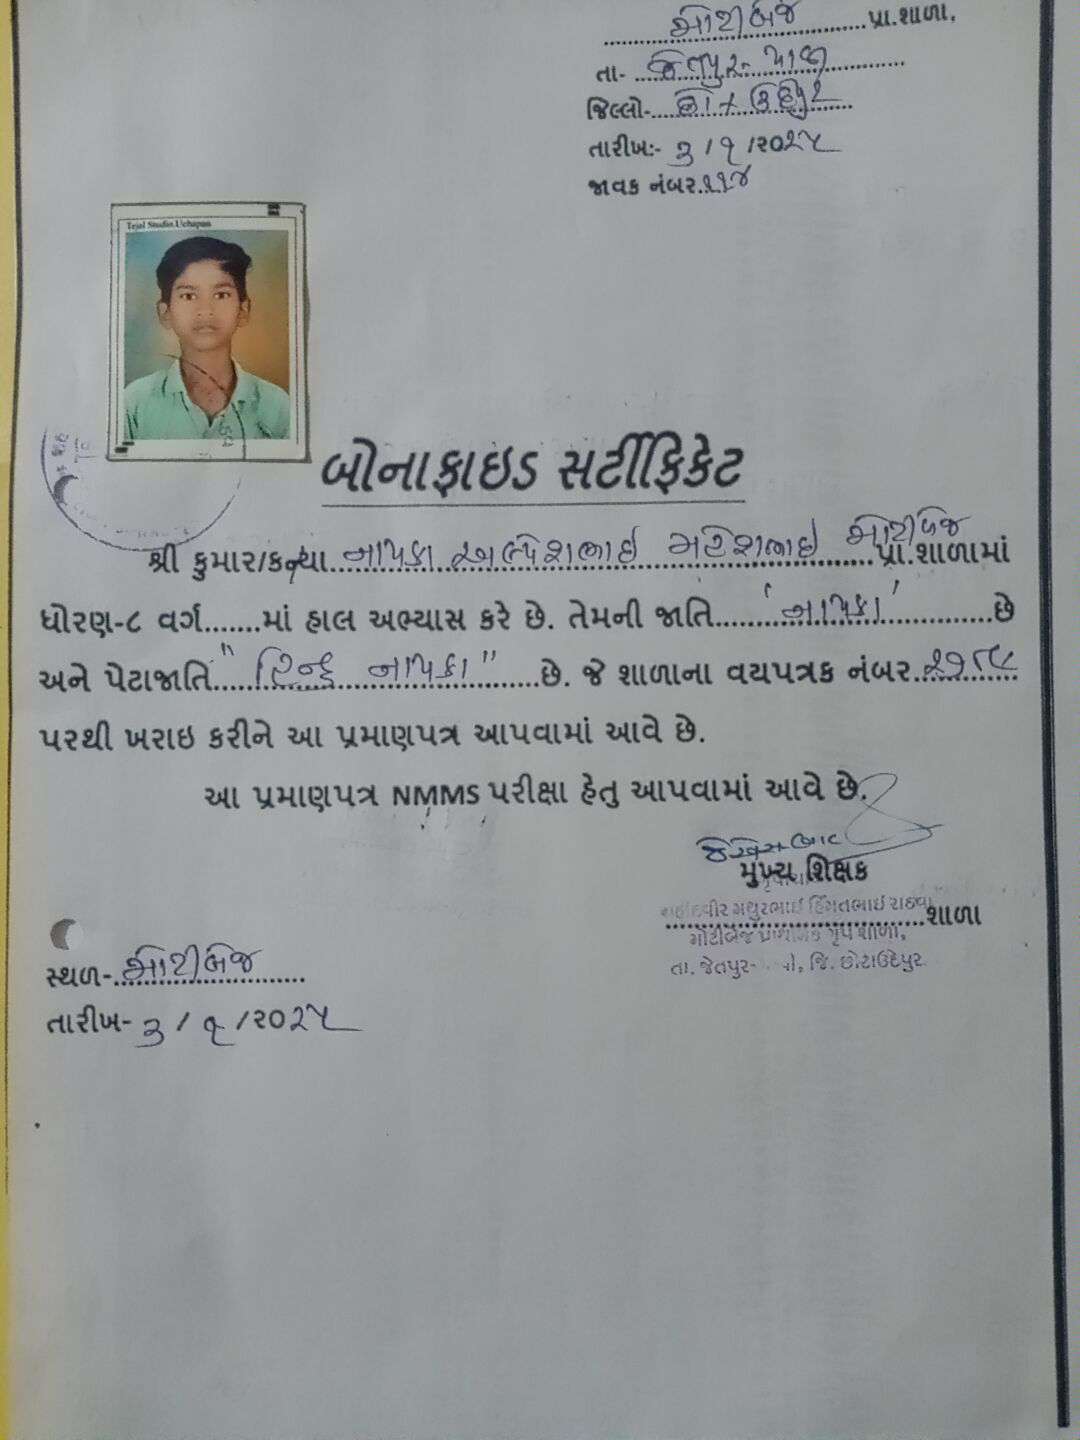 મોટીબેજ પ્રા.શાળા,
તા- જેતપુર- પાવી
જિલ્લો- છોટાઉદેપુર
તારીખઃ- ૩/૧/૨૦૨૫
જાવક નંબર.૧૧૪
Tejal Studio.Uchapan
બોનાફાઇડ સર્ટીફિકેટ
શ્રી કુમાર/કન્યા નાયકા અલ્પેશભાઇ મહેશભાઇ મોટીબેજ પ્રા.શાળામાં
ધોરણ-૮ વર્ગ.......માં હાલ અભ્યાસ કરે છે. તેમની જાતિ 'નાયકા' છે
અને પેટાજાતિ "હિન્દુ નાયકા" છે. જે શાળાના વયપત્રક નંબર
પરથી ખરાઇ કરીને આ પ્રમાણપત્ર આપવામાં આવે છે.
આ પ્રમાણપત્ર NMMS પરીક્ષા હેતુ આપવામાં આવે છે.
મુખ્ય શિક્ષક
મથુરભાઈ હિંમતભાઈ રાઠવા શાળા
મોટીબેજ પ્રાથમિક ગૃપ શાળા,
તા. જેતપુર- , જિ. છોટાઉદેપુર
સ્થળ- મોટીબેજ
તારીખ- ૩/૧/૨૦૨૫